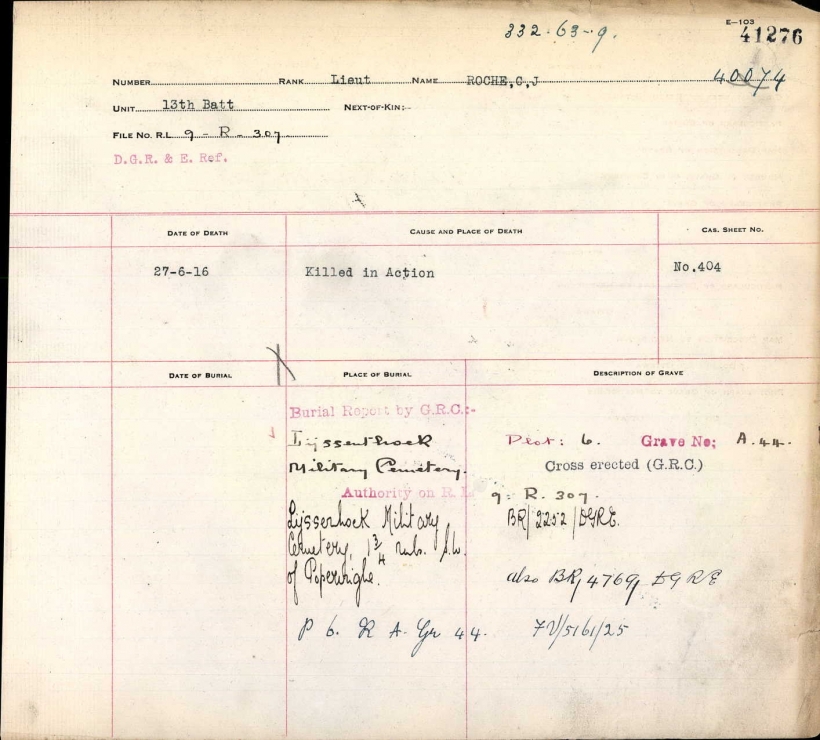 332-63-9.
E-103
41276
40074
NUMBER RANK Lieut NAME ROCHE,C,J
UNIT 13th Batt NEXT-OF-KIN:-
FILE NO. R.L. 9 - R - 307
D.G.R. & E. Ref.
DATE OF DEATH CAUSE AND PLACE OF DEATH CAS. SHEET NO.
27-6-16 Killed in Action No.404
DATE OF BURIAL PLACE OF BURIAL DESCRIPTION OF GRAVE
Burial Report by G.R.C.:-
Lijssenthoek Plot: 6. Grave No; A.44.
Military Cemetery. Cross erected (G.R.C.)
Authority on R.L. 9 - R. 307.
Lijssenhock Military BR/2252/DGRE.
Cemetery, 1 3/4 mls. S.W.
of Poperinghe. also BR/4769/ DGRE
P 6. R A. Gr 44. 7V/5161/25